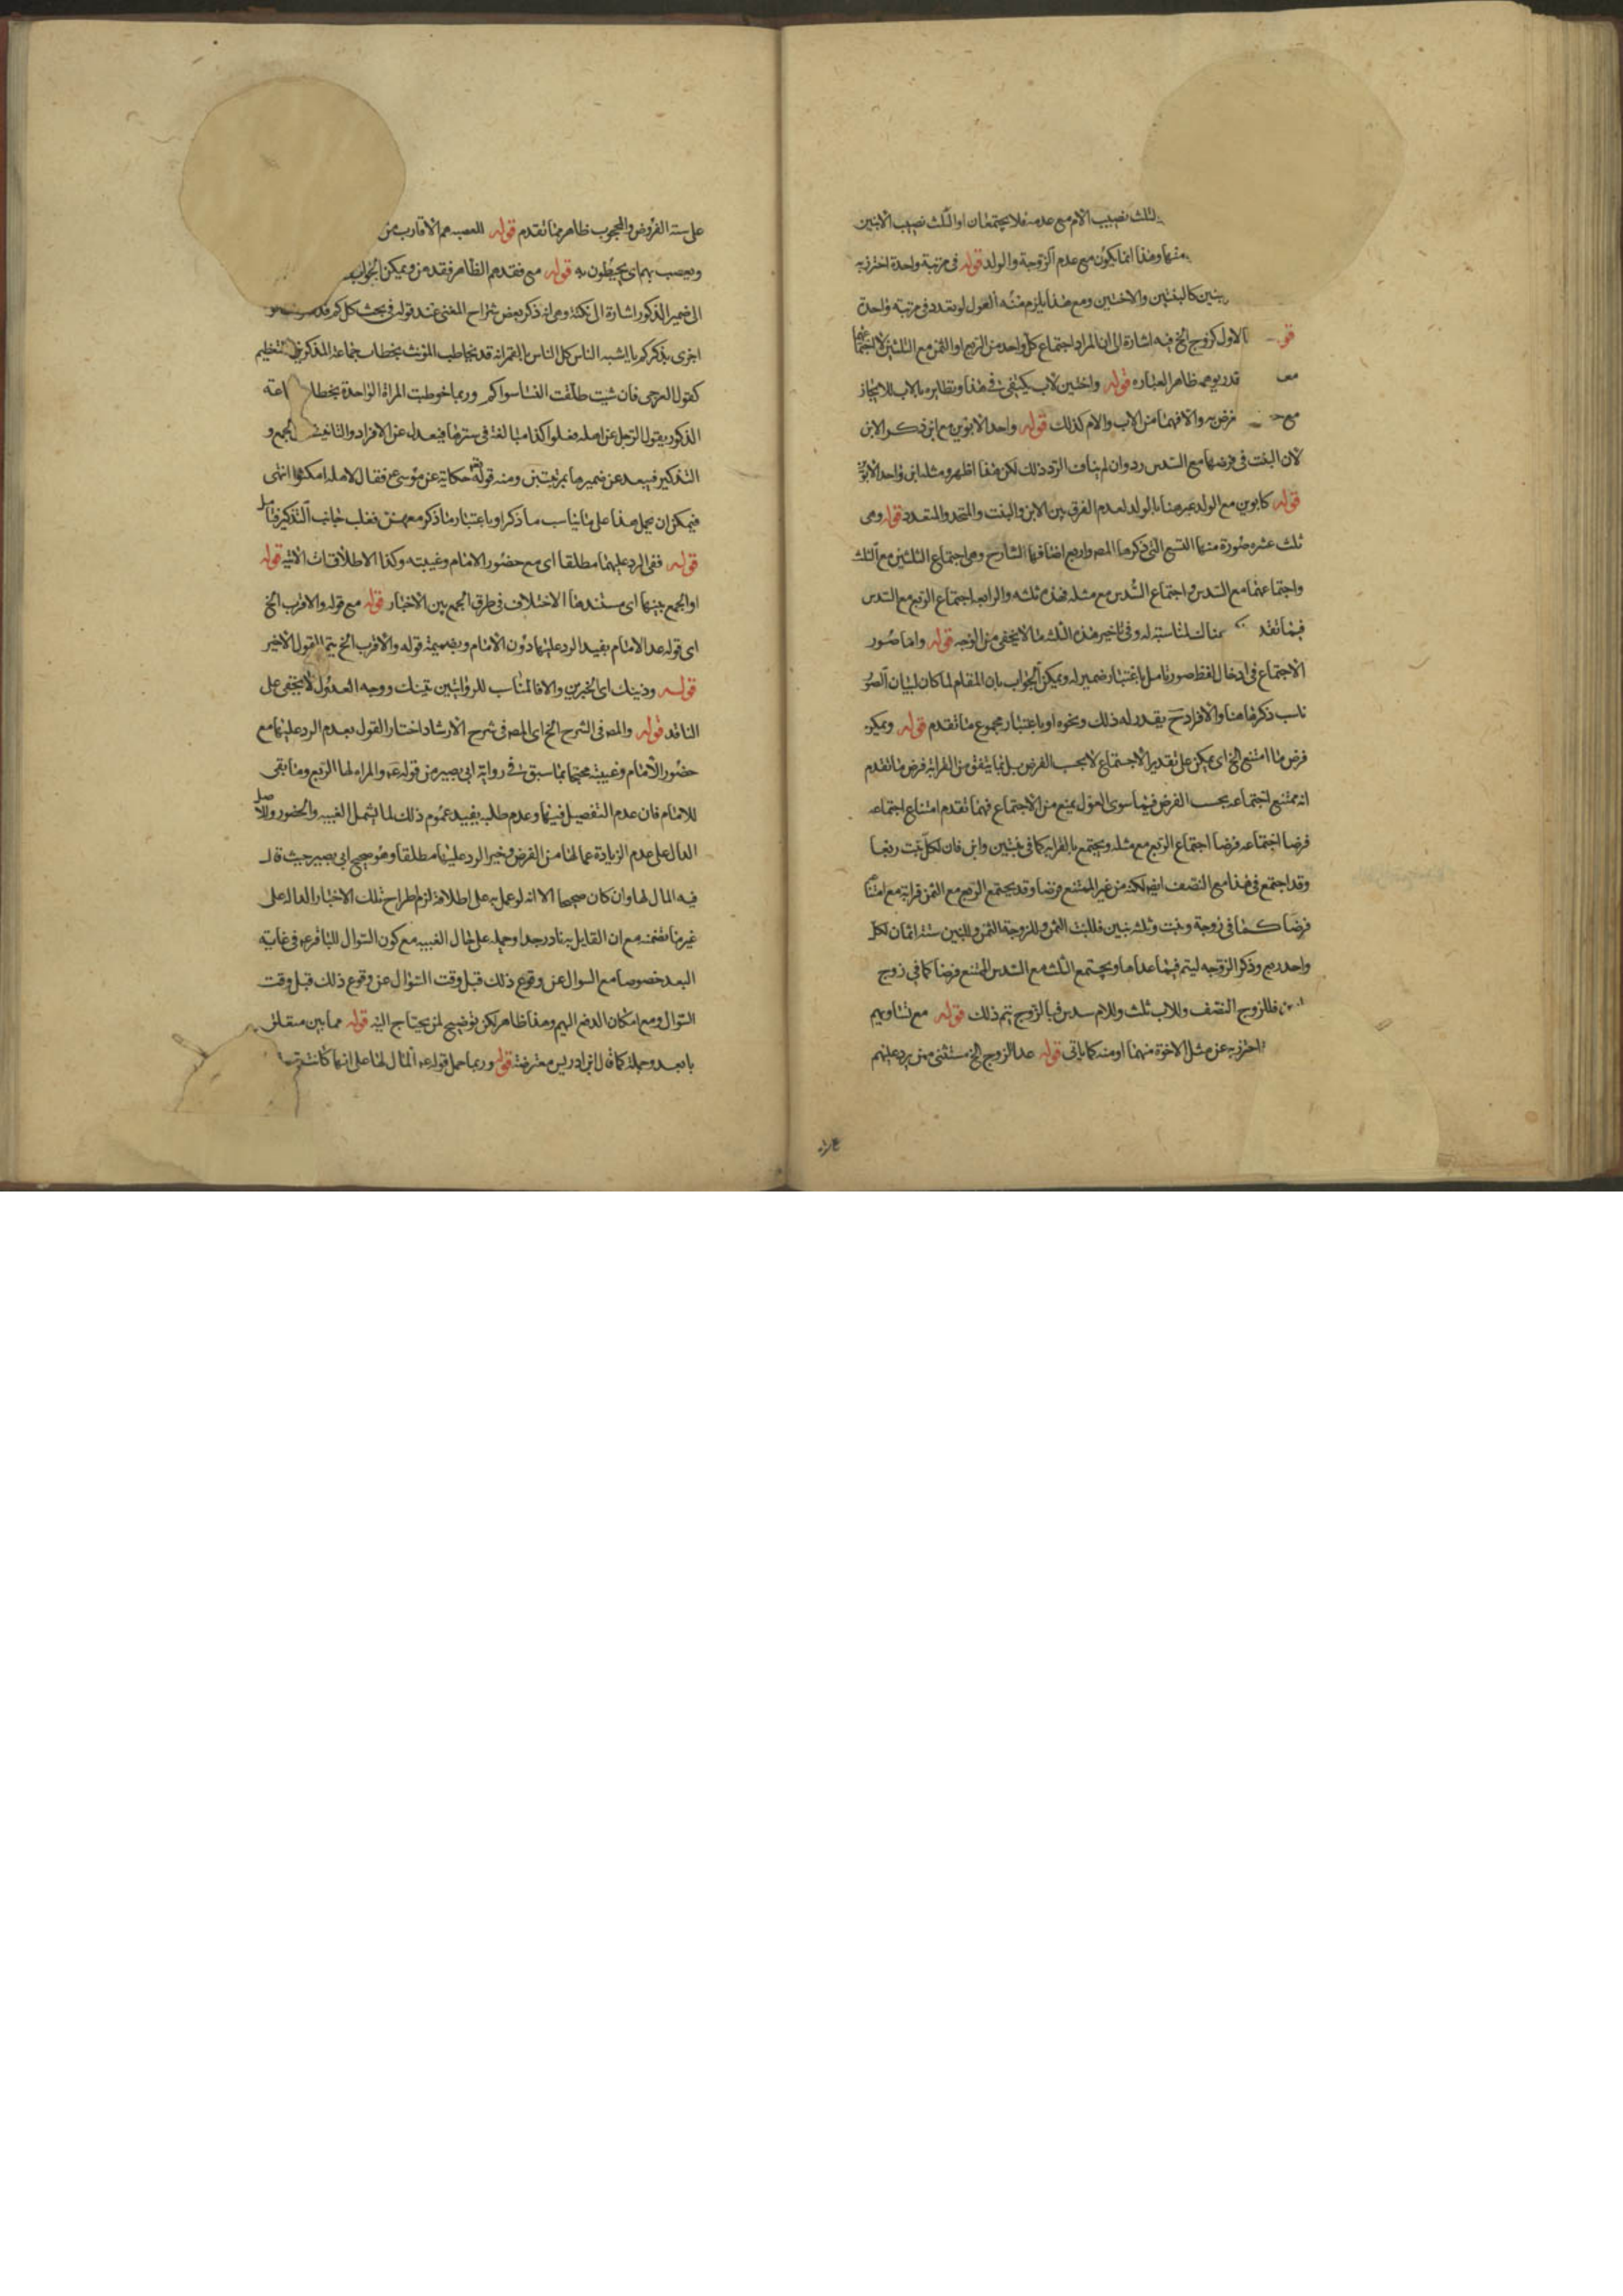 الثلث نصيب الام مع عدمه فلا يجتمعان او الثلث نصيب الاثنين
منها وهذا انما يكون مع عدم الزوجة والولد قوله في مرتبة واحدة احترز به
بنتين كالبنتين والاختين ومع هذا يلزم منه العول لو تعدد في مرتبة واحدة
قو الاول كزوج الخ فيه اشارة الى ان المراد اجتماع كل واحد من الربع او الثمن مع الثلثين لا اجتماعهما
معـ قد يوهمه ظاهر العبارة قوله واختين لاب يكتفى في هذا ونظايره بالاب للايجاز
مع فرض والا فهما من الاب والام كذلك قوله واحد الابوين مع ابن ذكر الابن
لان البنت في فرضها مع السدس رد وان لم يناف الرد ذلك لكن هذا اظهر ومثله ابن واحد الابوين
قوله كابوين مع الولد عبر هنا بالولد لعدم الفرق بين الابن والبنت والمتحد والمتعدد قوله وهي
ثلث عشره صورة منها التسع التي ذكرها المصـ واربع اضافها الشارح وهي اجتماع الثلثين مع الثلث
واجتماعهما مع السدس واجتماع السدس مع مثله فهذه ثلثه والرابعه اجتماع الربع مع السدس
فيما تقد هنا لمناسبته له وفي تاخير هذه الثلثه ما لا يخفى من الوجه قوله واما صور
الاجتماع في ادخال لفظ صور تامل باعتبار ضمير له ويمكن الجواب بان المقام لما كان لبيان الصور
ناسب ذكرها هنا والافراد ح بقدر له ذلك ونحوه او باعتبار مجموع ما تقدم قوله ويمكن
فرض ما امتنع الخ اي يمكن على تقدير الاجتماع لا بحسب الفرض بل فيما يتفق من القرابه فرض ما تقدم
انه ممتنع اجتماعه بحسب الفرض فيما سوى العول يمنع من الاجتماع فيما تقدم امتناع اجتماعه
فرضا اجتماعه فرضا اجتماع الربع مع مثله ويجتمع بالقرابه كما في بنتين وابن فان لكل بنت ربعا
وقد اجتمع في هذا مع النصف ايضا لكنه من غير الممتنع فرضا وقد يجتمع الربع مع الثمن قرابة مع امتناعه
فرضا كما في زوجة وبنت وثلثه بنين فللبنت الثمن وللزوجة الثمن وللبنين سته اثمان لكل
واحد ربع وذكر الزوجه ليتم فيما عداها ويجتمع الثلث مع السدس الممتنع فرضا كما في زوج
فللزوج النصف وللاب ثلث وللام سدس فبالزوج يتم ذلك قوله مع تساويهم
احترز به عن مثل الاخوة منهما او منه كما ياتي قوله عدا الزوج الخ مستثنى ممن يرد عليهم
على سته الفروض والمحجوب ظاهر مما تقدم قوله العصبه هم الاقارب من
وتعصب بهم اي يحيطون به قوله مع فقدهم الظاهر فقد من ويمكن الجواب
الى ضمير المذكور اشارة الى نكتة وهي انه ذكر بعض شراح المغني عند قوله في بحث كل كم قد
اجرى بذكركم يا اشبه الناس كل الناس بالقمر انه قد يخاطب المونث بخطاب جماعة المذكرين للتعظيم
كقول العرجي فان شيت طلقت النسا سواكم وربما خوطبت المراة الواحدة بخطاب جماعة
الذكور يقول الرجل عن اهله فعلوا كذا مبالغة في سترها فيعدل عن الافراد والتانيث الجمع و
التذكير فيبعد عن ضميرها بمرتبتين ومنه قوله تعـ حكاية عن موسى ع فقال لاهله امكثوا انتهى
فيمكن ان يحمل هذا على ما يناسب ما ذكر او باعتبار ما ذكر معهن فغلب جانب التذكير فتامل
قوله ففي الرد عليهما مطلقا اي مع حضور الامام وغيبته وكذا الاطلاقات الاتيه قوله
او الجمع بينها اي مستند هذا الاختلاف في طرق الجمع بين الاخبار قوله مع قوله والاقرب الخ
اي قوله عد الامام يفيد الرد عليهما دون الامام وبضميمة قوله والاقرب الخ يتم القول الاخير
قوله وذينك اي الخبرين والا فالمناسب للروايتين تينك ووجه العدول لا يخفى على
الناقد قوله والمصـ في الشرح الخ اي المصـ في شرح الارشاد اختار القول بعدم الرد عليها مع
حضور الامام وغيبته محتجا بما سبق في رواية ابي بصير من قوله عـ والمراه لها الربع وما بقى
للامام فان عدم التفصيل فيها وعدم طلبه يفيد عموم ذلك لما يشمل الغيبه والحضور والاصل
الدال على عدم الزيادة عما لها من الفرض وخبر الرد عليها مطلقا وهو صحيح ابي بصير حيث قال
فيه المال لها وان كان صحيحا الا انه لو عمل به على اطلاقه لزم اطراح تلك الاخبار الداله على
غير ما تضمنه مع ان القايل به نادر جدا وحمله على حال الغيبه مع كون السوال للباقر عـ في غاية
البعد خصوصا مع السوال عن وقوع ذلك قبل وقت السوال عن وقوع ذلك قبل وقت
السوال ومع امكان الدفع اليهم وهذا ظاهر لكن توضيح لمن يحتاج اليه قوله مما بين مستقلن
بابعد وجملة كما قال ابن ادريس معترضة قوله وربما حمل قوله عـ المال لها على انها كانت